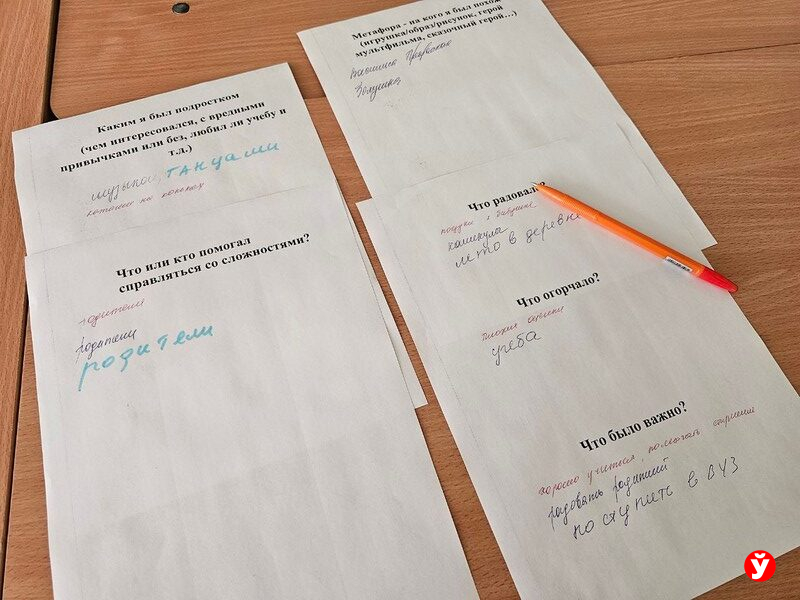 Каким я был подростком
(чем интересовался, с вредными
привычками или без, любил ли учебу и
т.д.)
музыкой, танцами
катанием на коньках
Что или кто помогал
справляться со сложностями?
родители
родители
родители
Метафора - на кого я был похож
(игрушка/образ/рисунок, герой
мультфильма, сказочный герой...)
Василиса Прекрасная
Золушка
Что радовало?
поездки к бабушке
каникулы
лето в деревне
Что огорчало?
плохие оценки
учеба
Что было важно?
хорошо учиться, помогать старшим
радовать родителей
поступить в ВУЗ
ў